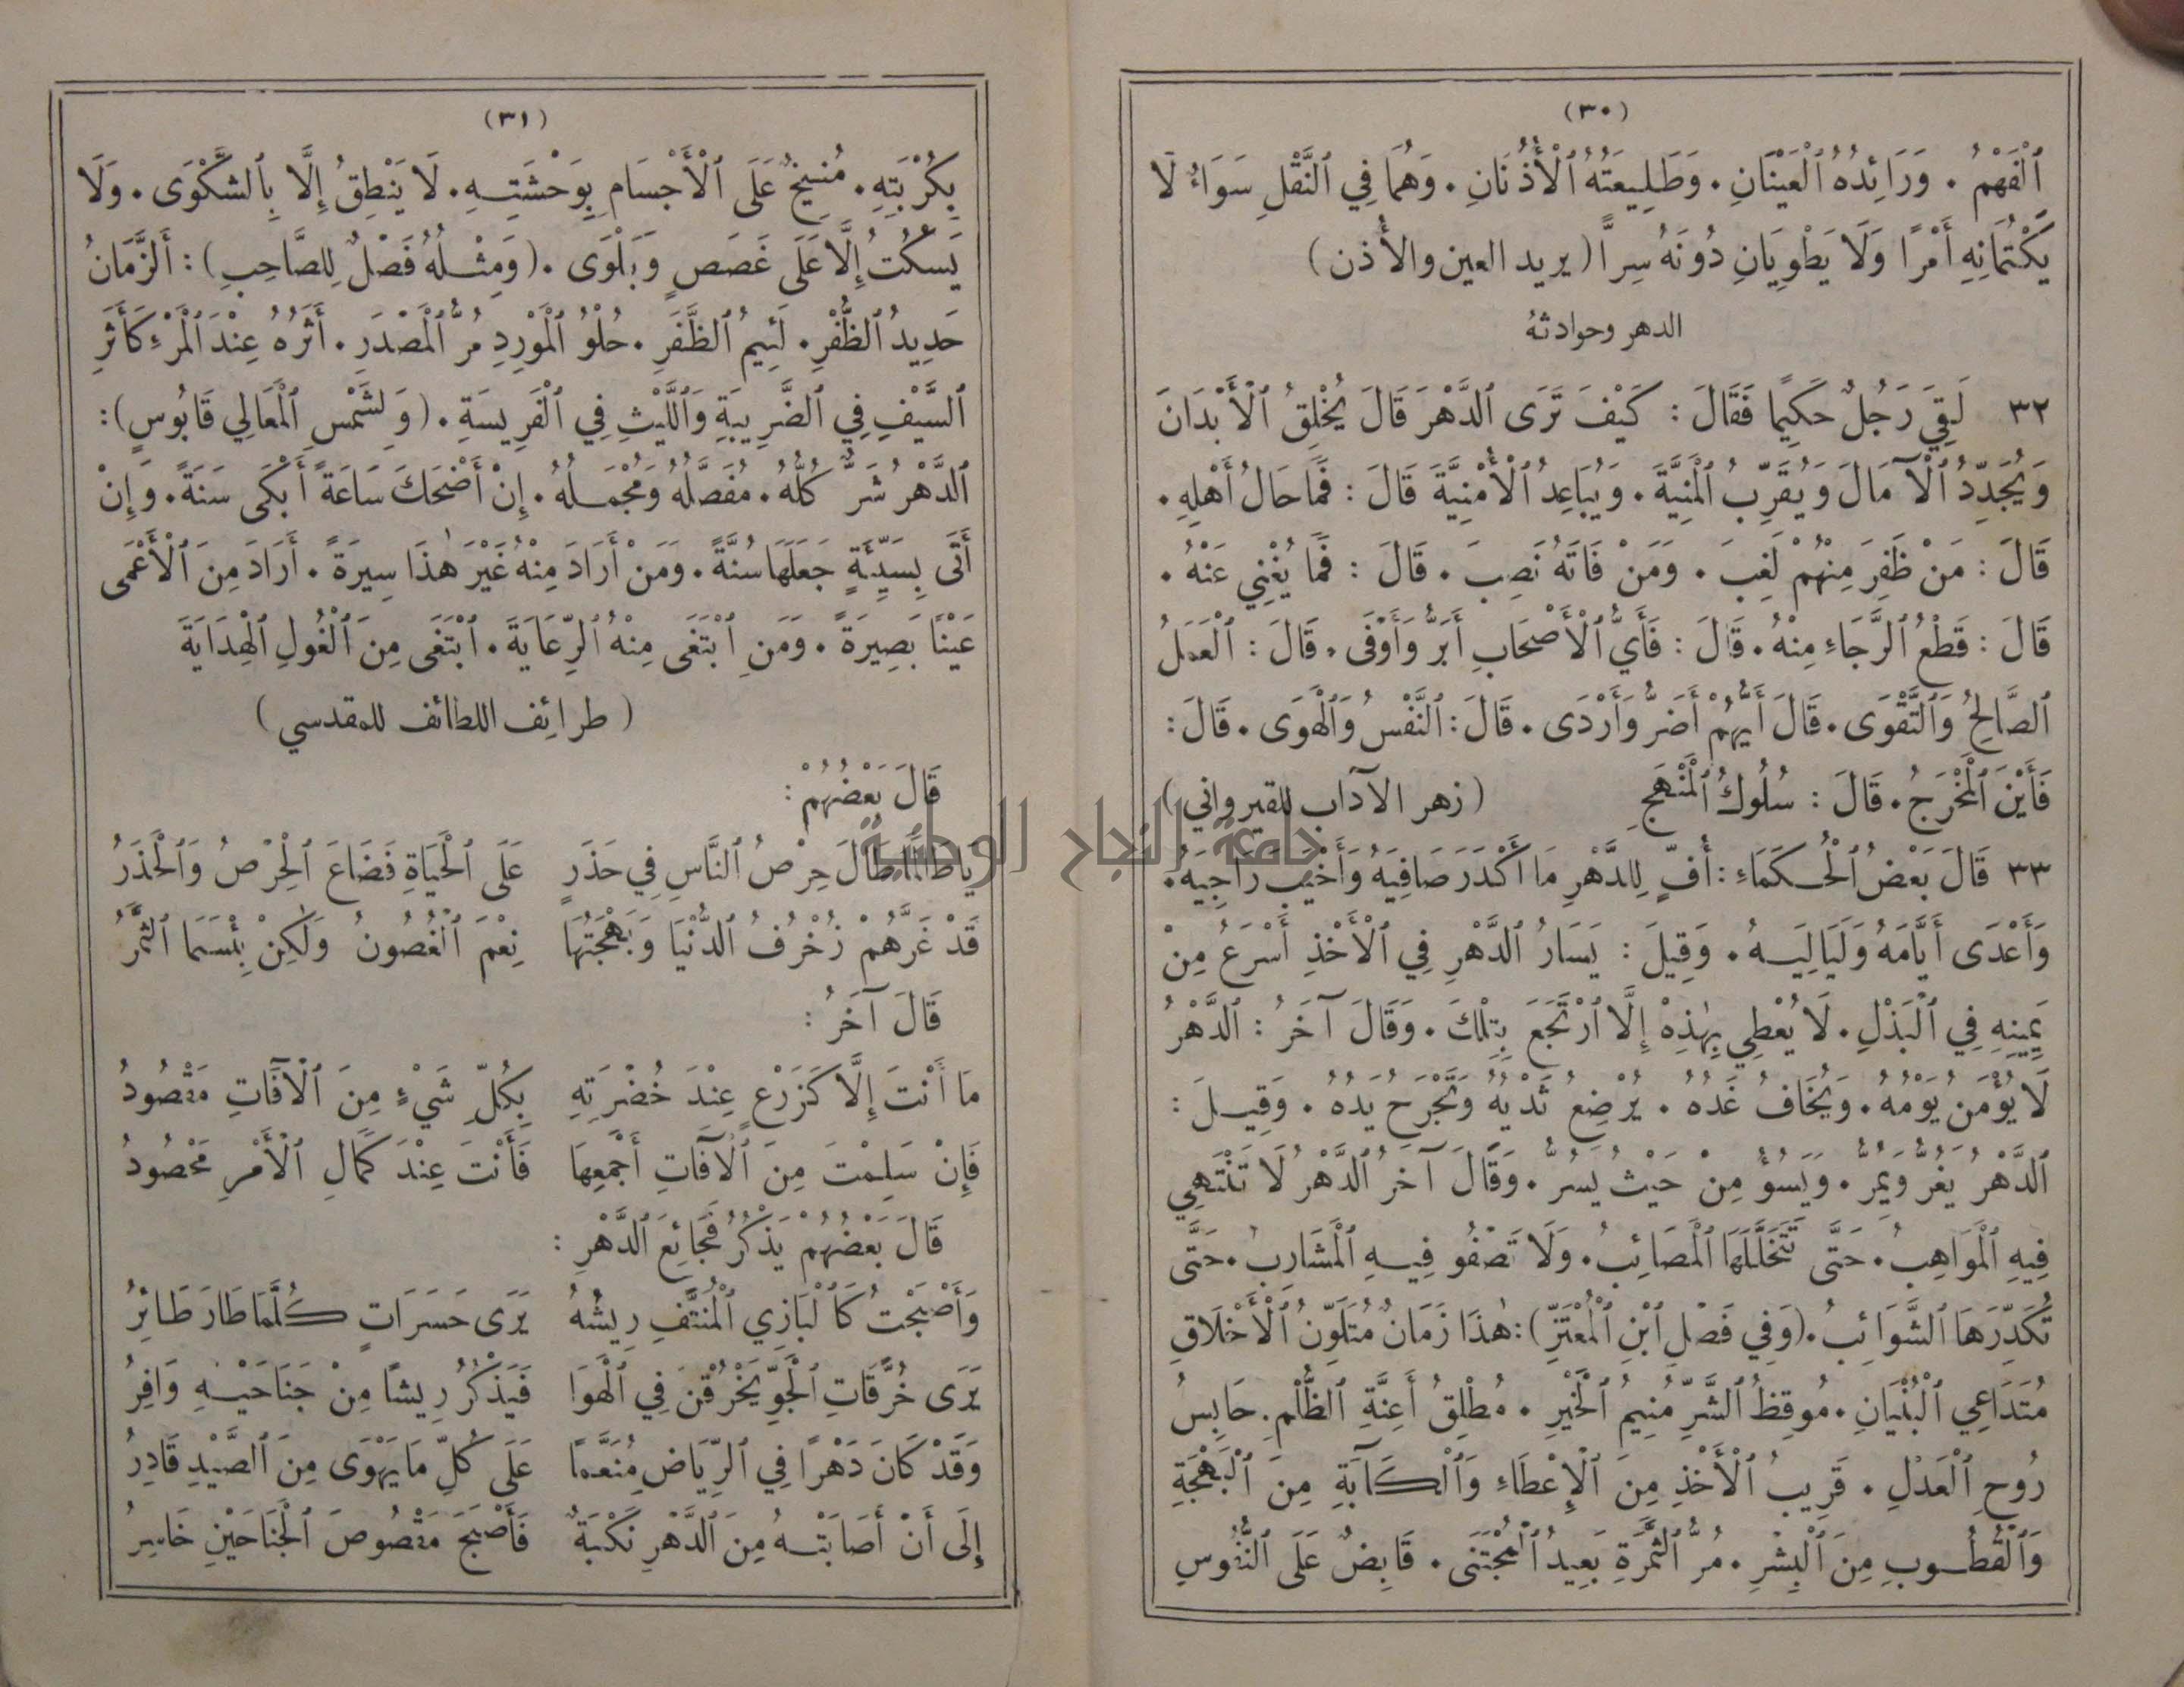 (٣٠)
ٱلْفَهْمُ . وَرَائِدُهُ ٱلْعَيْنَانِ . وَطَلِيعَتُهُ ٱلْأُذُنَانِ . وَهُمَا فِي ٱلنَّقْلِ سَوَاءٌ لَا
يَكْتُمَانِهِ أَمْرًا وَلَا يَطْوِيَانِ دُونَهُ سِرًّا (يريد العين والأذن)
الدهر وحوادثهُ
٣٢ لَقِيَ رَجُلٌ حَكِيمًا فَقَالَ : كَيْفَ تَرَى ٱلدَّهْرَ قَالَ يُخْلِقُ ٱلْأَبْدَانَ
وَيُجَدِّدُ ٱلْآمَالَ وَيُقَرِّبُ ٱلْمَنِيَّةَ . وَيُبَاعِدُ ٱلْأُمْنِيَّةَ قَالَ : فَمَا حَالُ أَهْلِهِ .
قَالَ : مَنْ ظَفِرَ مِنْهُمْ لَغِبَ . وَمَنْ فَاتَهُ نَصِبَ . قَالَ : فَمَا يُغْنِي عَنْهُ .
قَالَ : قَطْعُ ٱلرَّجَاءِ مِنْهُ . قَالَ : فَأَيُّ ٱلْأَصْحَابِ أَبَرُّ وَأَوْفَى . قَالَ : ٱلْعَمَلُ
ٱلصَّالِحُ وَٱلتَّقْوَى . قَالَ أَيُّهُمْ أَضَرُّ وَأَرْدَى . قَالَ : ٱلنَّفْسُ وَٱلْهَوَى . قَالَ :
فَأَيْنَ ٱلْمَخْرَجُ . قَالَ : سُلُوكُ ٱلْمَنْهَجِ (زهر الآداب للقيرواني)
٣٣ قَالَ بَعْضُ ٱلْحُكَمَاءِ : أُفٍّ لِلدَّهْرِ مَا أَكْدَرَ صَافِيَهُ وَأَخْيَبَ رَاجِيَهُ .
وَأَعْدَى أَيَّامَهُ وَلَيَالِيَهُ . وَقِيلَ : يَسَارُ ٱلدَّهْرِ فِي ٱلْأَخْذِ أَسْرَعُ مِنْ
يَمِينِهِ فِي ٱلْبَذْلِ . لَا يُعْطِي بِهٰذِهْ إِلَّا ٱرْتَجَعَ بِتِلْكَ . وَقَالَ آخَرُ : ٱلدَّهْرُ
لَا يُؤْمَنُ يَوْمُهُ . وَيُخَافُ غَدُهُ . يُرْضِعُ ثَدْيُهُ وَتَجْرَحُ يَدُهُ . وَقِيلَ :
ٱلدَّهْرُ يَغُرُّ وَيَمُرُّ . وَيَسُوْ مِنْ حَيْثُ يَسُرُّ . وَقَالَ آخَرُ ٱلدَّهْرُ لَا تَنْتَهِي
فِيهِ ٱلْمَوَاهِبُ . حَتَّى تَتَخَلَّلَهَا ٱلْمَصَائِبُ . وَلَا تَصْفُو فِيهِ ٱلْمَشَارِبُ . حَتَّى
تُكَدِّرَهَا ٱلشَّوَائِبُ . (وَفِي فَصْلِ ٱبْنِ ٱلْمُعْتَزِّ) : هٰذَا زَمَانٌ مُتَلَوِّنُ ٱلْأَخْلَاقِ
مُتَدَاعِي ٱلْبُنْيَانِ . مُوقِظُ ٱلشَّرِّ مُنِيمُ ٱلْخَيْرِ . مُطْلِقُ أَعِنَّةِ ٱلظُّلْمِ . حَابِسُ
رُوحِ ٱلْعَدْلِ . قَرِيبُ ٱلْأَخْذِ مِنَ ٱلْإِعْطَاءِ وَٱلْكَآبَةِ مِنَ ٱلْبَهْجَةِ
وَٱلْقُطُوبِ مِنَ ٱلْبِشْرِ . مُرُّ ٱلثَّمَرَةِ بَعِيدُ ٱلْمُجْتَنَى . قَابِضٌ عَلَى ٱلنُّفُوسِ
(٣١)
بِكُرْبَتِهِ . مُنِيخٌ عَلَى ٱلْأَجْسَامِ بِوَحْشَتِهِ . لَا يَنْطِقُ إِلَّا بِٱلشَّكْوَى . وَلَا
يَسْكُتُ إِلَّا عَلَى غَصَصٍ وَبَلْوَى . (وَمِثْلُهُ فَصْلٌ لِلصَّاحِبِ) : أَلزَّمَانُ
حَدِيدُ ٱلظُّفْرِ . لَئِيمُ ٱلظَّفَرِ . حُلْوُ ٱلْمَوْرِدِ مُرُّ ٱلْمَصْدَرِ . أَثَرُهُ عِنْدَ ٱلْمَرْءِ كَأَثَرِ
ٱلسَّيْفِ فِي ٱلضَّرِيبَةِ وَٱللَّيْثِ فِي ٱلْفَرِيسَةِ . (وَلِشَمْسِ ٱلْمَعَالِي قَابُوسٍ) :
ٱلدَّهْرُ شَرٌّ كُلُّهُ . مُفَصَّلُهُ وَمُجْمَلُهُ . إِنْ أَضْحَكَ سَاعَةً أَبْكَى سَنَةً . وَإِنْ
أَتَى بِسَيِّئَةٍ جَعَلَهَا سُنَّةً . وَمَنْ أَرَادَ مِنْهُ غَيْرَ هٰذَا سِيرَةً . أَرَادَ مِنَ ٱلْأَعْمَى
عَيْنًا بَصِيرَةً . وَمَنِ ٱبْتَغَى مِنْهُ ٱلرِّعَايَةَ . ٱبْتَغَى مِنَ ٱلْغُولِ ٱلْهِدَايَةَ
(طرائف اللطائف للمقدسي)
قَالَ بَعْضُهُمْ :
يَا طَالَمَا طَالَ حِرْصُ ٱلنَّاسِ فِي حَذَرٍ عَلَى ٱلْحَيَاةِ فَضَاعَ ٱلْحِرْصُ وَٱلْحَذَرُ
قَدْ غَرَّهُمْ زُخْرُفُ ٱلدُّنْيَا وَبَهْجَتُهَا نِعْمَ ٱلْغُصُونُ وَلٰكِنْ بِئْسَمَا ٱلثَّمَرُ
قَالَ آخَرُ :
مَا أَنْتَ إِلَّا كَزَرْعٍ عِنْدَ خُضْرَتِهِ بِكُلِّ شَيْءٍ مِنَ ٱلْآفَاتِ مَقْصُودُ
فَإِنْ سَلِمْتَ مِنَ ٱلْآفَاتِ أَجْمَعِهَا فَأَنْتَ عِنْدَ كَمَالِ ٱلْأَمْرِ مَحْصُودُ
قَالَ بَعْضُهُمْ يَذْكُرُ فَجَائِعَ ٱلدَّهْرِ :
وَأَصْبَحْتُ كَٱلْبَازِي ٱلْمُنَتَّفِ رِيشُهُ يَرَى حَسَرَاتٍ كُلَّمَا طَارَ طَائِرُ
يَرَى خُرَّقَاتِ ٱلْجَوِّ يَخْرُقْنَ فِي ٱلْهَوَا فَيَذْكُرُ رِيشًا مِنْ جَنَاحَيْهِ وَافِرُ
وَقَدْ كَانَ دَهْرًا فِي ٱلرِّيَاضِ مُنَعَّمًا عَلَى كُلِّ مَا يَهْوَى مِنَ ٱلصَّيْدِ قَادِرُ
إِلَى أَنْ أَصَابَتْهُ مِنَ ٱلدَّهْرِ نَكْبَةٌ فَأَصْبَحَ مَقْصُوصَ ٱلْجَنَاحَيْنِ خَاسِرُ
جامعة النجاح الوطنية